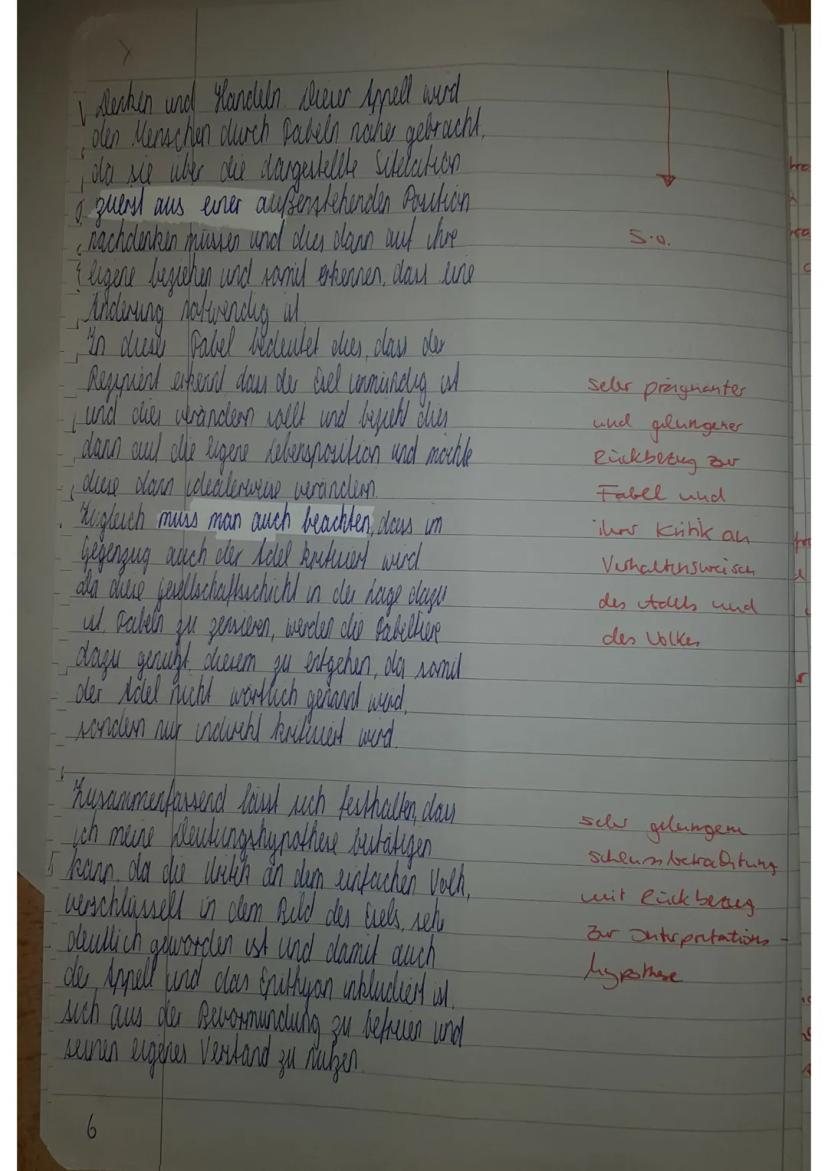 Denken und Handeln. Dieser Appell wird
den Menschen durch Fabeln näher gebracht,
da sie über die dargestellte Situation
zuerst aus einer außenstehenden Position
nachdenken müssen und dies dann auf ihre
eigene beziehen und somit erkennen, dass eine
Änderung notwendig ist.
In dieser Fabel bedeutet dies, dass der
Rezipient erkennt dass der Esel unmündig ist
und dies verändern sollt und bezieht dies
dann auf die eigene Lebensposition und möchte
diese dann idealerweise verändern.
Zugleich muss man auch beachten, dass im
Gegenzug auch der Adel kritisiert wird
da diese Gesellschaftsschicht in der Lage dazu
ist, Fabeln zu zensieren, werden die Fabeltiere
dazu genutzt diesem zu entgehen, da somit
der Adel nicht wörtlich genannt wird,
sondern nur indirekt kritisiert wird.
Zusammenfassend lässt sich festhalten, dass
ich meine Deutungshypothese bestätigen
kann, da die Kritik an dem einfachen Volk,
verschlüsselt in dem Bild des Esels, sehr
deutlich geworden ist und damit auch
der Appell und das Epithyon inkludiert ist,
sich aus der Bevormundung zu befreien und
seinen eigenes Verstand zu nutzen.
6
s.o.
sehr prägnanter
und gelungener
Rückbezug zur
Fabel und
ihrer Kritik an
Verhaltensweisen
des Adels und
des Volkes
sehr gelungene
Schlussbetrachtung
mit Rückbezug
zur Interpretations-
hypothese